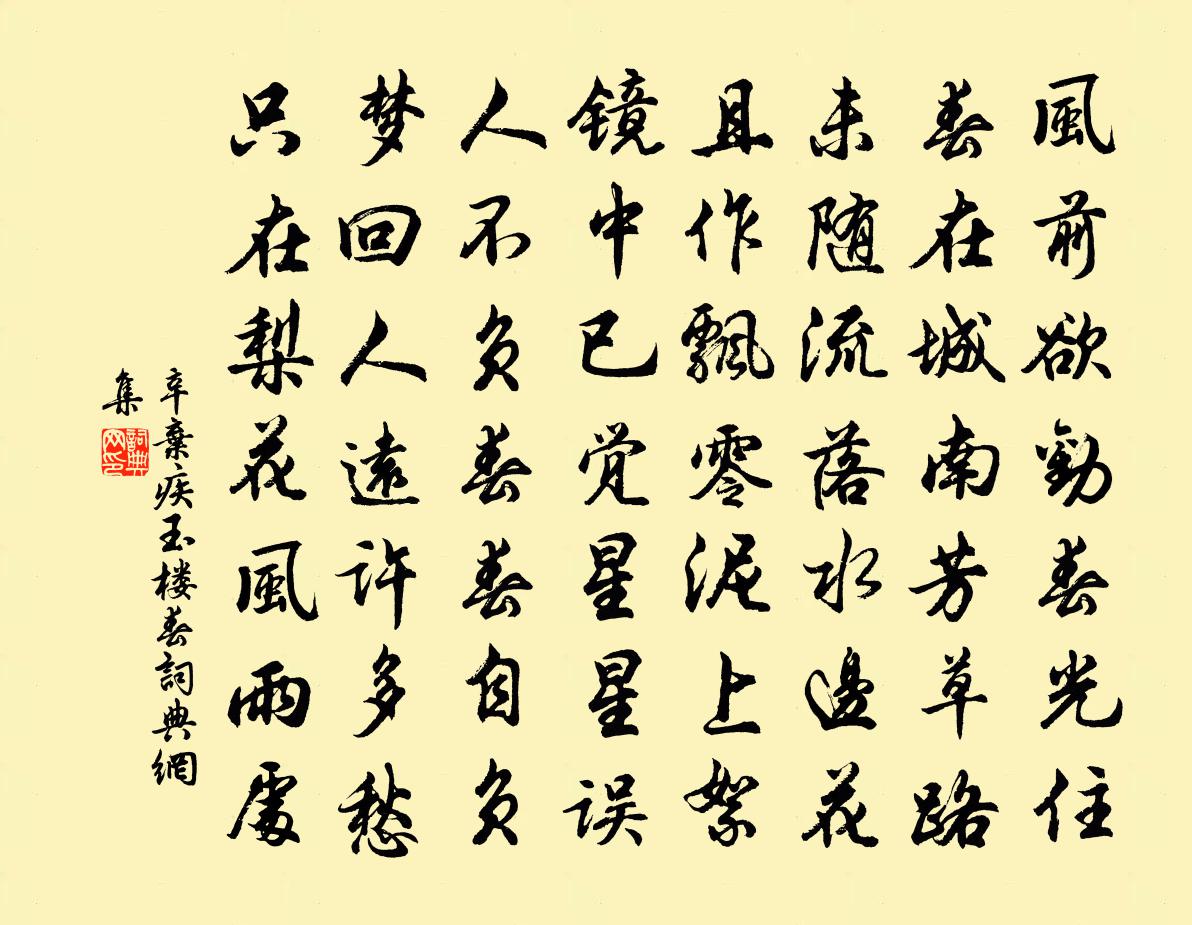 風前欲勸春光住
春在城南芳草路
未随流落水邊花
且作飄零泥上絮
镜中已觉星星误
人不负春春自负
梦回人遠许多愁
只在梨花風雨處
辛棄疾玉楼春詞典網
集
詞典网印